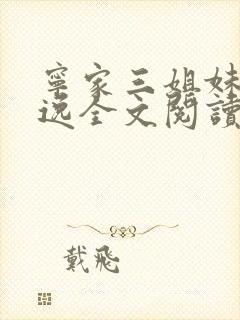 寧家三姐妹
逸全文閱讀
戴飛